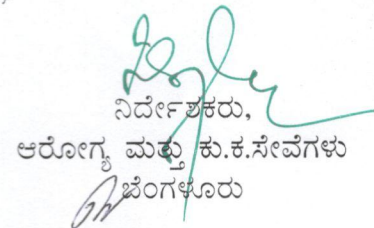 ನಿರ್ದೇಶಕರು,
ಆರೋಗ್ಯ ಮತ್ತು ಕು.ಕ.ಸೇವೆಗಳು
ಬೆಂಗಳೂರು